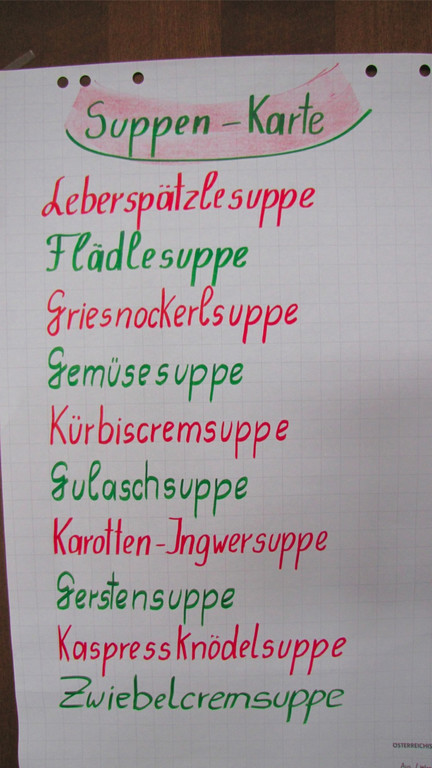 Suppen-Karte
Leberspätzlesuppe
Flädlesuppe
Griesnockerlsuppe
Gemüsesuppe
Kürbiscremsuppe
Gulaschsuppe
Karotten-Ingwersuppe
Gerstensuppe
Kaspressknödelsuppe
Zwiebelcremsuppe